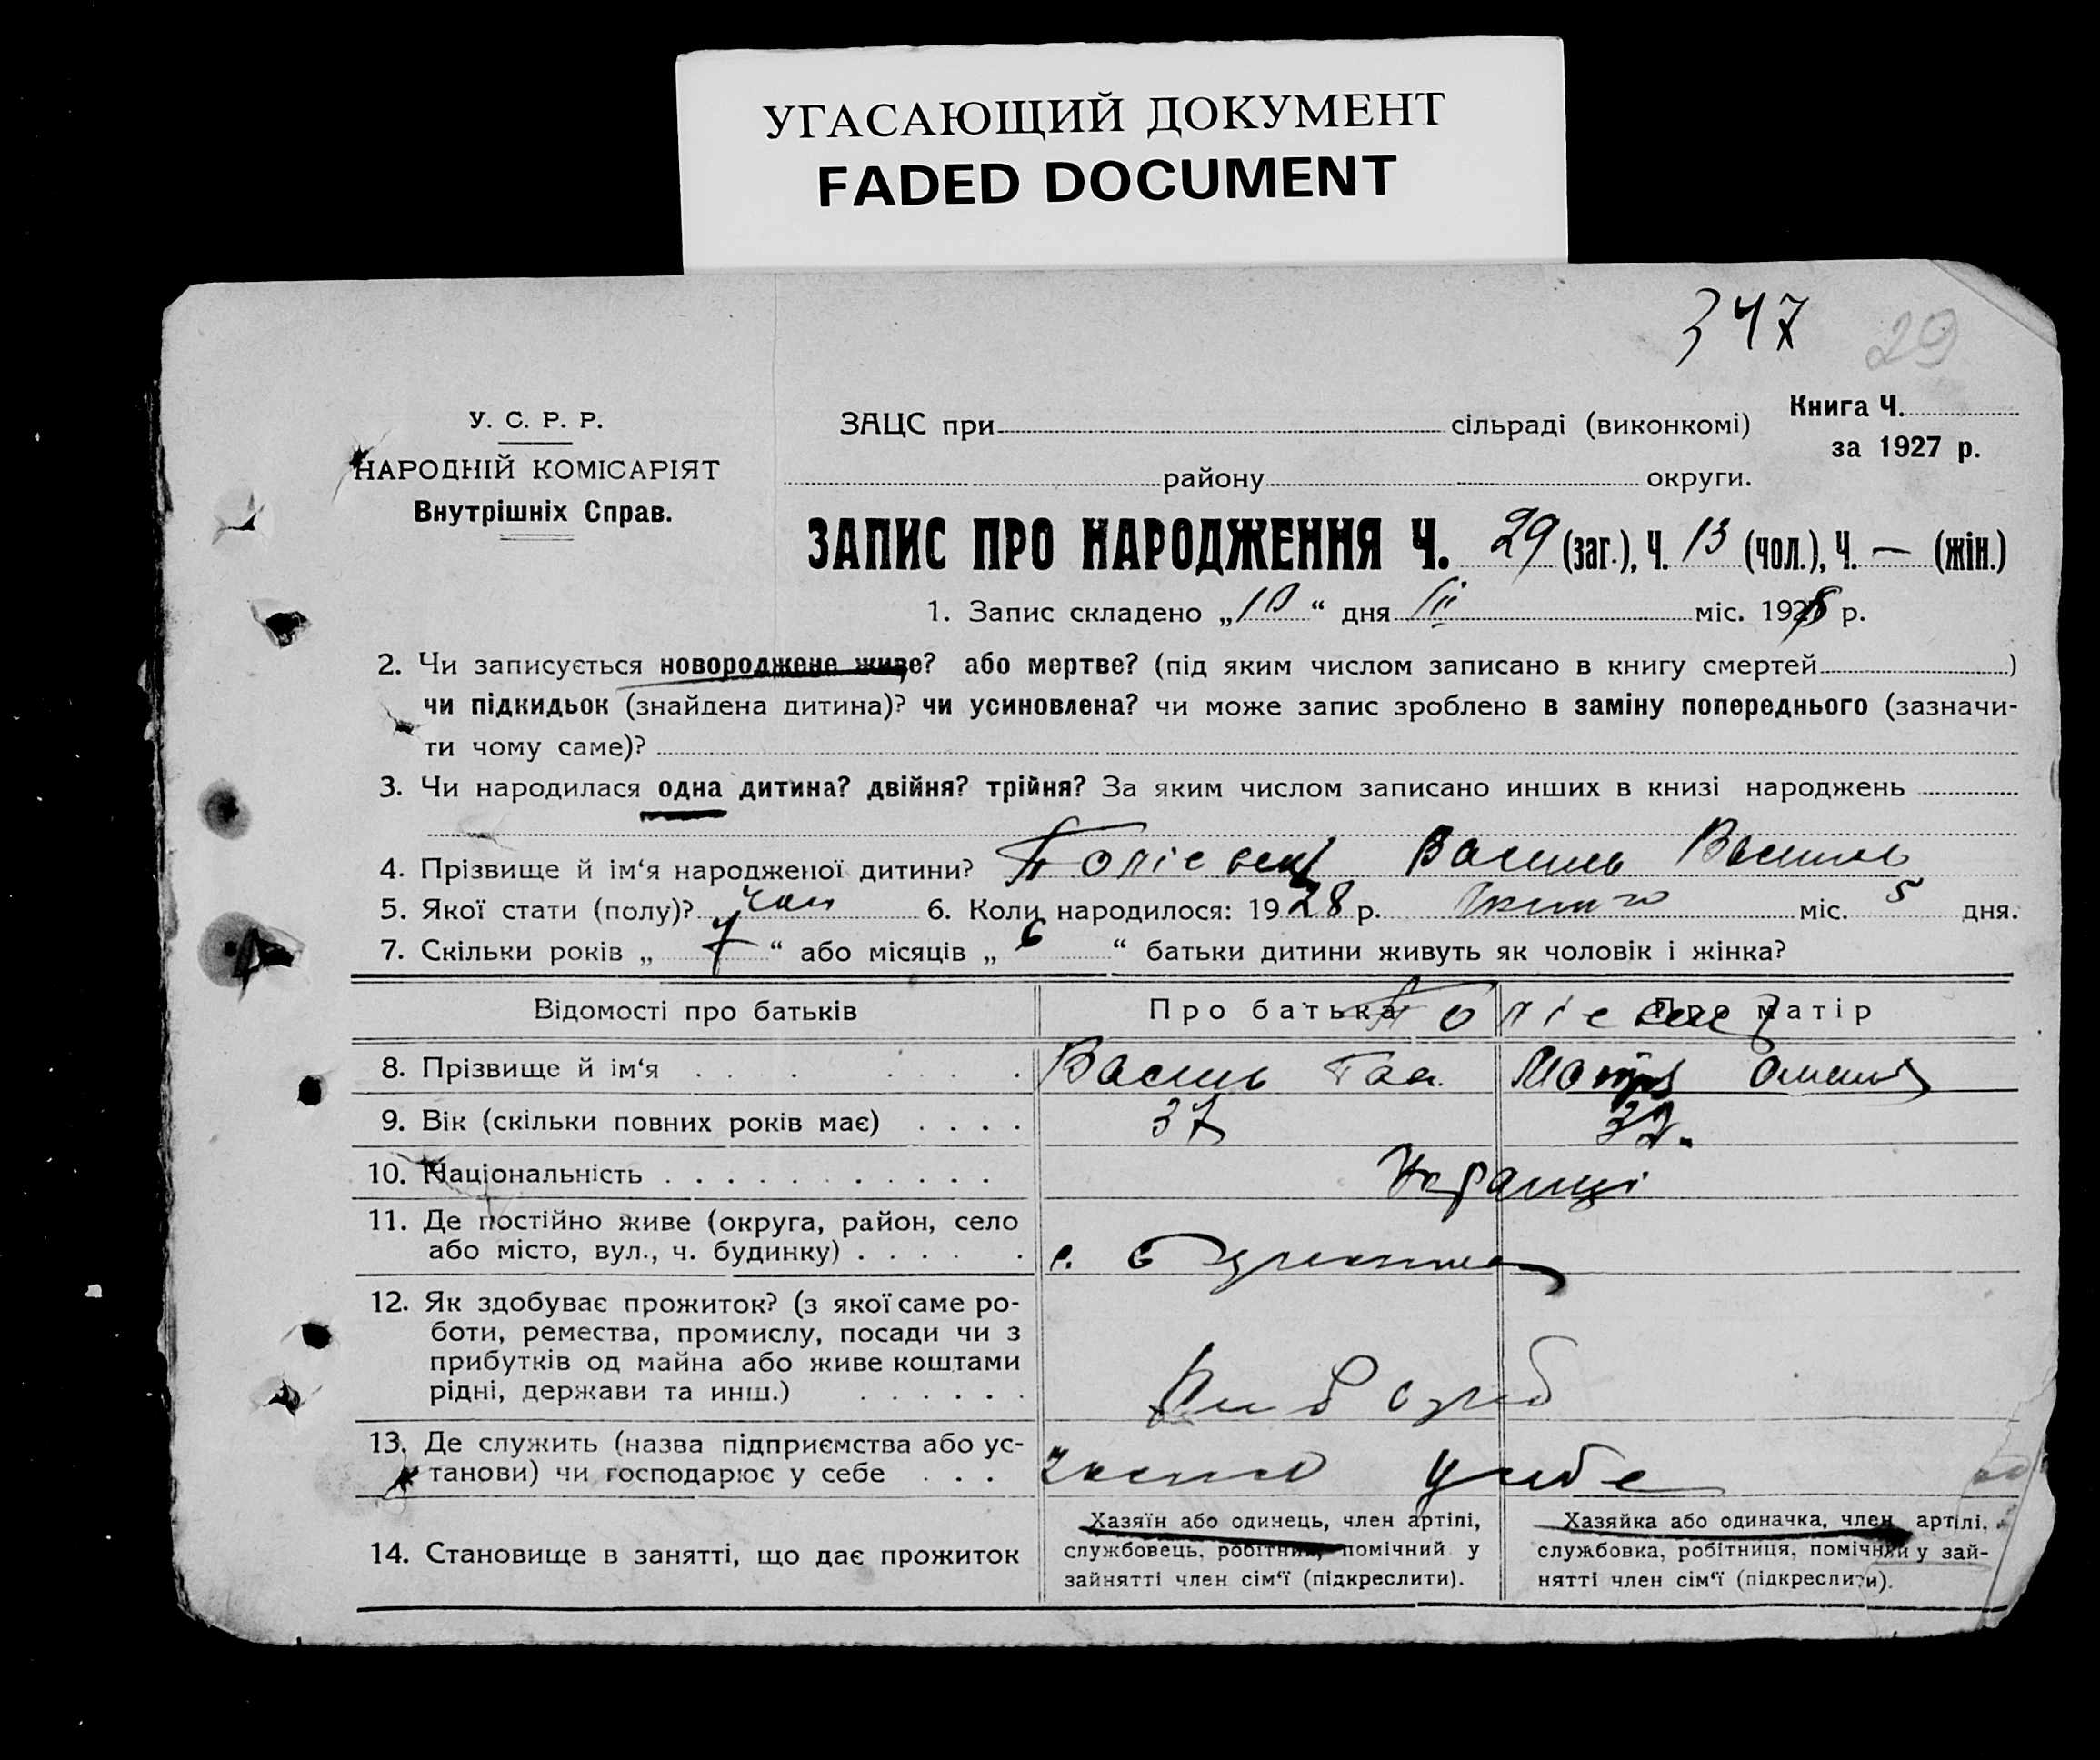 УГАСАЮЩИЙ ДОКУМЕНТ
FADED DOCUMENT
347 29
У. С. Р. Р.
НАРОДНІЙ КОМІСАРІЯТ
Внутрішніх Справ.
ЗАЦС при сільраді (виконкомі)
Книга Ч.
за 1927 р.
району округи.
ЗАПИС ПРО НАРОДЖЕННЯ Ч. 29 (заг.), Ч. 13 (чол.), Ч. — (жін.)
1. Запис складено „10“ дня III міс. 1928 р.
2. Чи записується новороджене живе? або мертве? (під яким числом записано в книгу смертей )
чи підкидьок (знайдена дитина)? чи усиновлена? чи може запис зроблено в заміну попереднього (зазначи-
ти чому саме)?
3. Чи народилася одна дитина? двійня? трійня? За яким числом записано инших в книзі народжень
4. Прізвище й ім‘я народженої дитини? Василь Василь
5. Якої стати (полу)? чол 6. Коли народилося: 1928 р. міс. 5 дня.
7. Скільки років „ 7 “ або місяців „ 6 “ батьки дитини живуть як чоловік і жінка?
Відомості про батьків Про батька Про матір
8. Прізвище й ім‘я Василь
9. Вік (скільки повних років має) 37 32.
10. Національність Українці
11. Де постійно живе (округа, район, село
або місто, вул., ч. будинку) с.
12. Як здобуває прожиток? (з якої саме ро-
боти, ремества, промислу, посади чи з
прибутків од майна або живе коштами
рідні, держави та инш.)
13. Де служить (назва підприємства або ус-
танови) чи господарює у себе
14. Становище в занятті, що дає прожиток
Хазяїн або одинець, член артілі,
службовець, робітник, помічний у
зайнятті член сім‘ї (підкреслити).
Хазяйка або одиначка, член артілі,
службовка, робітниця, помічний у зай-
нятті член сім‘ї (підкреслити).